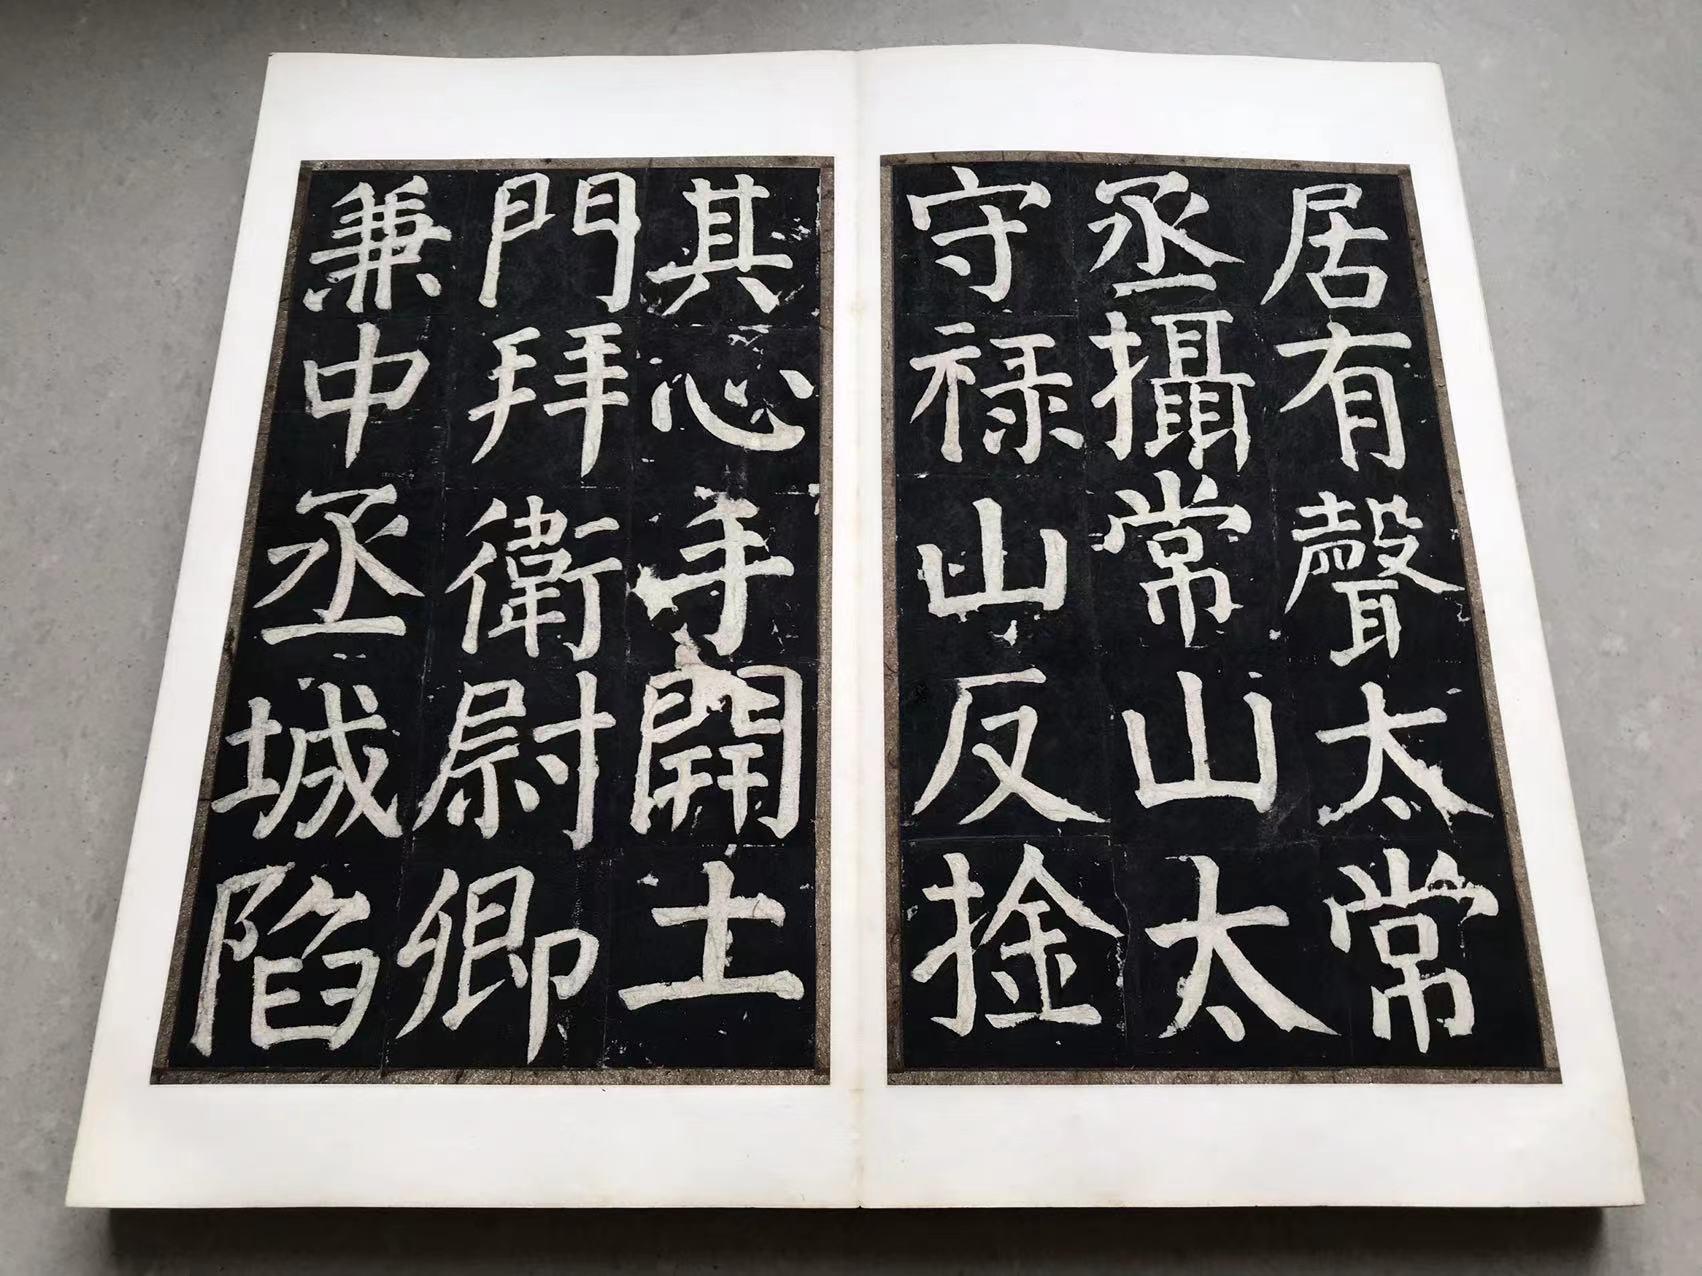 居有聲太常
丞攝常山太
守禄山反捦
其心手開土
門拜衛尉卿
兼中丞城陷